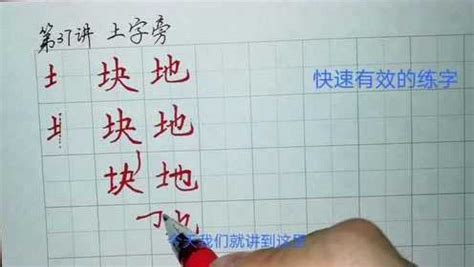 第37讲 土字旁
土 块 地
快速有效的练字
土 块 地
块 地
今天我们就讲到这里